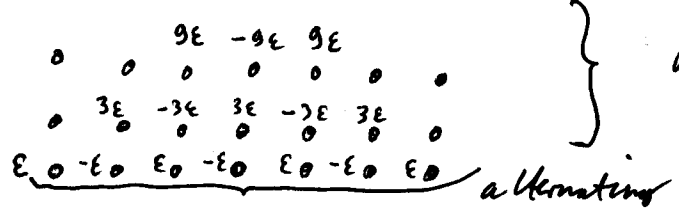 9ε -9ε 9ε
3ε -3ε 3ε -3ε 3ε
ε -ε ε -ε ε -ε ε
alternating